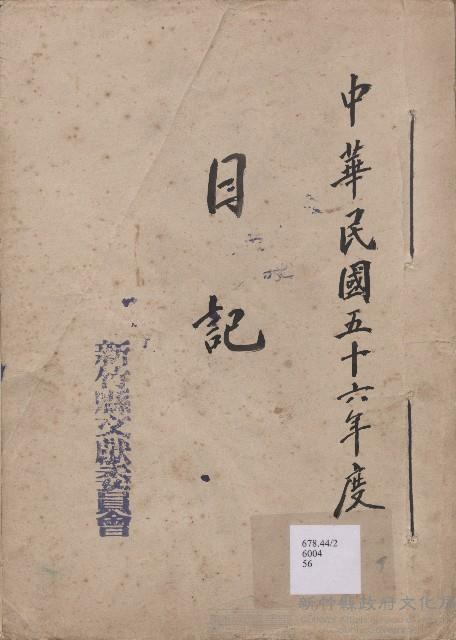 中華民國五十六年度
日記
新竹縣文獻委員會
678.44/2
6004
56
新竹縣政府文化局